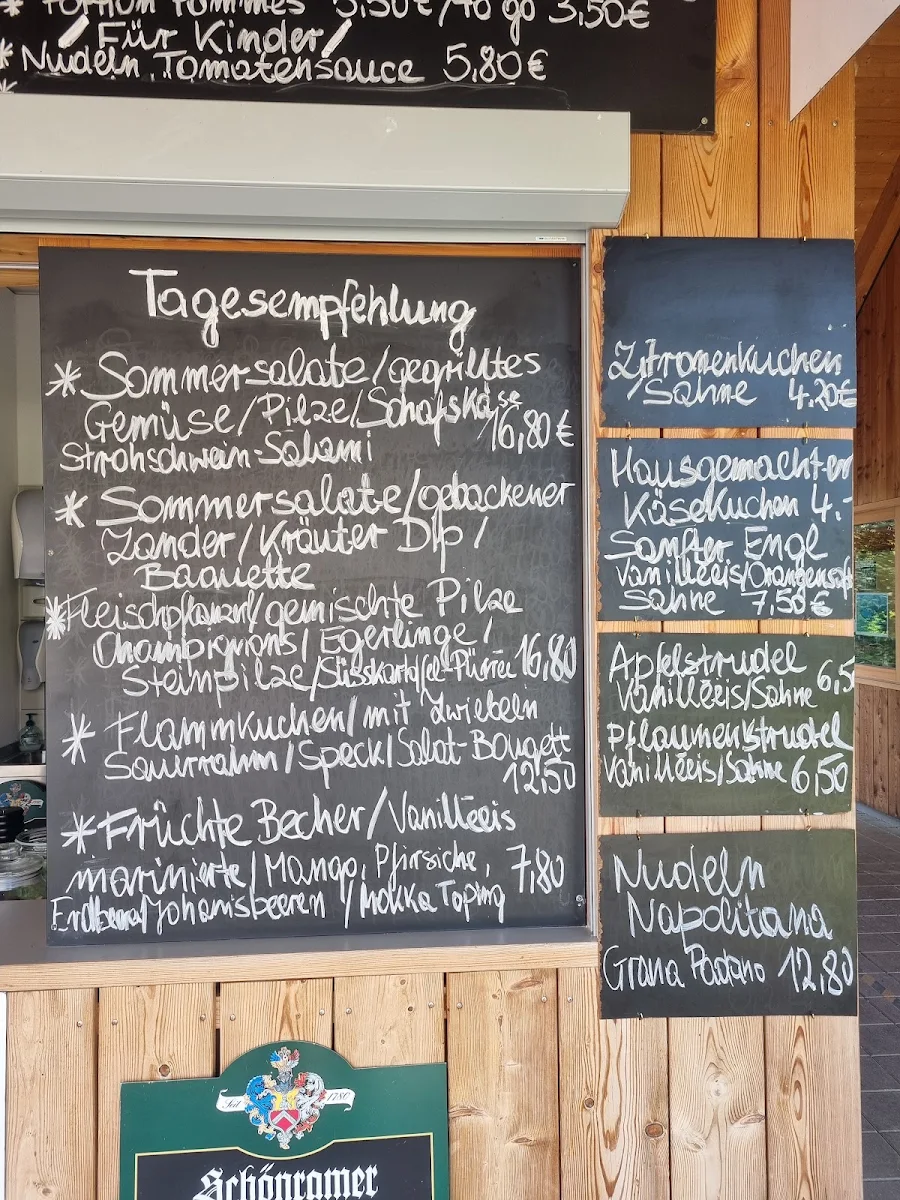 * Portion Pommes 5,50€/To go 3,50€
/Für Kinder/
* Nudeln, Tomatensauce 5,80€
Tagesempfehlung
* Sommersalate/gegrilltes
Gemüse/Pilze/Schafskäse
16,80€
Strohschwein-Salami
* Sommersalate/gebackener
Zander/Kräuter Dip/
Baguette
* Fleischpflanzerl/gemischte Pilze
Champignons/Egerlinge/
Steinpilze/Süsskartoffel-Pürree 16,80
* Flammkuchen/mit Zwiebeln
Sauerrahm/Speck/Salat-Bouqett
12,50
* Früchte Becher/Vanilleeis
marinierte/Mango, Pfirsiche, 7,80
Erdbeeren/Johanisbeeren/Mokka Toping
Zitronenkuchen
/Sahne 4.20€
Hausgemachter
Käsekuchen 4.-
Sanfter Engel
Vanilleeis/Orangensaft
Sahne 7,50€
Apfelstrudel
Vanilleeis/Sahne 6,5
Pflaumenstrudel
Vanilleeis/Sahne 6,50
Nudeln
Napolitana
Grana Padano 12,80
Seit 1780
Schönramer